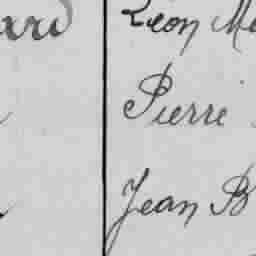 ard Léon
Pierre
Jean B